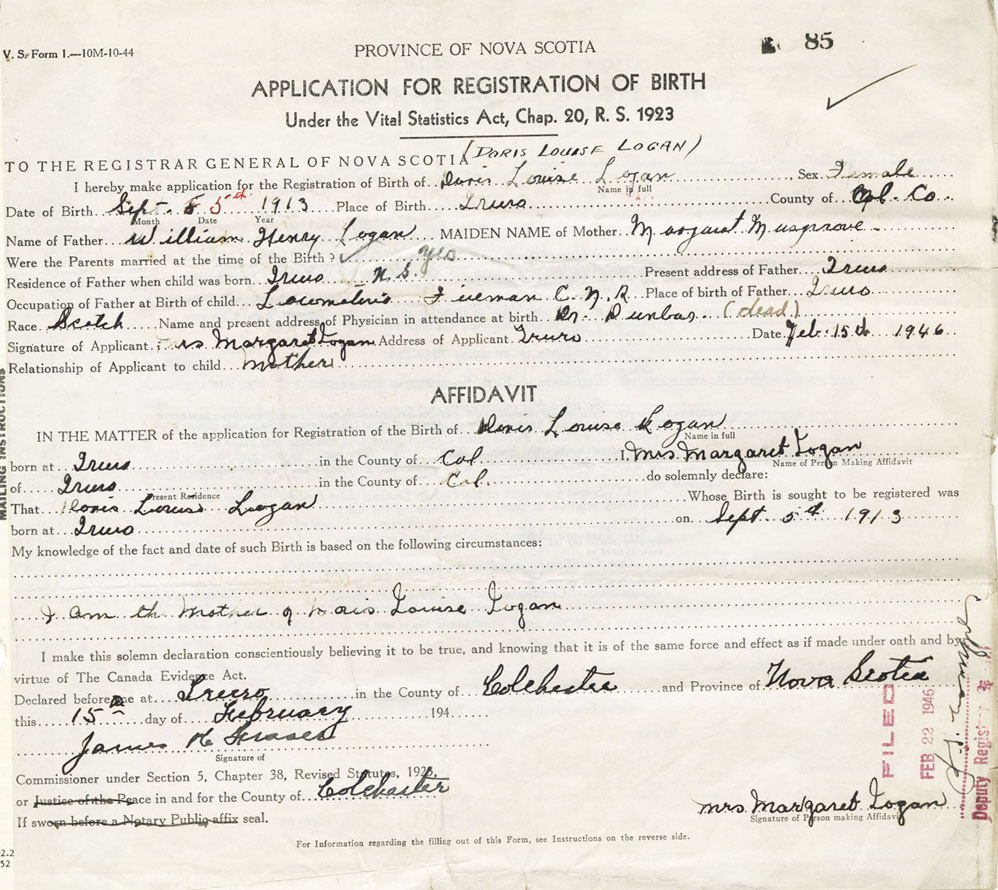 V. S. Form 1.—10M-10-44
85
PROVINCE OF NOVA SCOTIA
APPLICATION FOR REGISTRATION OF BIRTH
Under the Vital Statistics Act, Chap. 20, R. S. 1923
(DORIS LOUISE LOGAN)
TO THE REGISTRAR GENERAL OF NOVA SCOTIA
I hereby make application for the Registration of Birth of Doris Louise Logan Sex Female
Name in full
Date of Birth Sept. 5th 1913 Place of Birth Truro County of Col. Co.
Month Date Year
Name of Father William Henry Logan MAIDEN NAME of Mother Margaret Musgrove
Were the Parents married at the time of the Birth? yes
Residence of Father when child was born Truro N.S. Present address of Father Truro
Occupation of Father at Birth of child Locomotive Fireman C.N.R. Place of birth of Father Truro
Race Scotch Name and present address of Physician in attendance at birth Dr. Dunbar (dead)
Signature of Applicant Mrs. Margaret Logan Address of Applicant Truro Date Feb. 15th 1946
Relationship of Applicant to child mother
AFFIDAVIT
IN THE MATTER of the application for Registration of the Birth of Doris Louise Logan
Name in full
born at Truro in the County of Col. I, Mrs. Margaret Logan
Name of Person Making Affidavit
of Truro in the County of Col. do solemnly declare:
Present Residence
That Doris Louise Logan Whose Birth is sought to be registered was
born at Truro on Sept 5th 1913
My knowledge of the fact and date of such Birth is based on the following circumstances:
I am th Mother of Doris Louise Logan
I make this solemn declaration conscientiously believing it to be true, and knowing that it is of the same force and effect as if made under oath and by
virtue of The Canada Evidence Act.
Declared before me at Truro in the County of Colchester and Province of Nova Scotia
this 15th day of February 194
James H Fraser
Signature of
Commissioner under Section 5, Chapter 38, Revised Statutes, 1923,
or Justice of the Peace in and for the County of Colchester
If sworn before a Notary Public affix seal.
mrs. Margaret Logan
Signature of Person making Affidavit
For Information regarding the filling out of this Form, see Instructions on the reverse side.
FILED
FEB 22 1946
Deputy Regist
MAILING INSTRUCTIONS
2.2
52